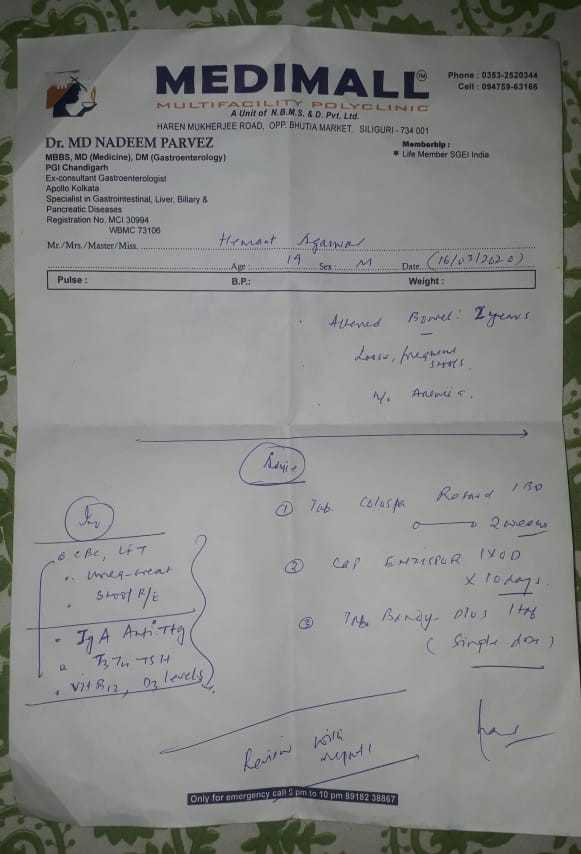 MEDIMALL TM
MULTIFACILITY POLYCLINIC
A Unit of N.B.M.S. & D. Pvt. Ltd.
HAREN MUKHERJEE ROAD, OPP. BHUTIA MARKET, SILIGURI - 734 001
Phone : 0353-2520344
Cell : 094759-63166
Dr. MD NADEEM PARVEZ
MBBS, MD (Medicine), DM (Gastroenterology)
PGI Chandigarh
Ex-consultant Gastroenterologist
Apollo Kolkata
Specialist in Gastrointestinal, Liver, Biliary &
Pancreatic Diseases
Registration No. MCI 30994
WBMC 73106
Memberhip :
* Life Member SGEI India
Mr./Mrs./Master/Miss. Hemant Agarwal
Age : 19 Sex : M Date (16/03/2020)
Pulse : B.P.: Weight :
Altered Bowel : 2 years
Loose, frequent
stools.
Advice
① Tab. Colospa Retard 1 BD
2 weeks
② Cap 1 X OD
X 10 days.
③ Tab. Bandy Plus 1 tab
(Single dose)
Inv
CBC, LFT
Urea, creat
Stool R/E
IgA Anti tTg
T3 T4 TSH
Vit B12, D3 levels
Review with
reports
Only for emergency call 9 pm to 10 pm 89182 38867